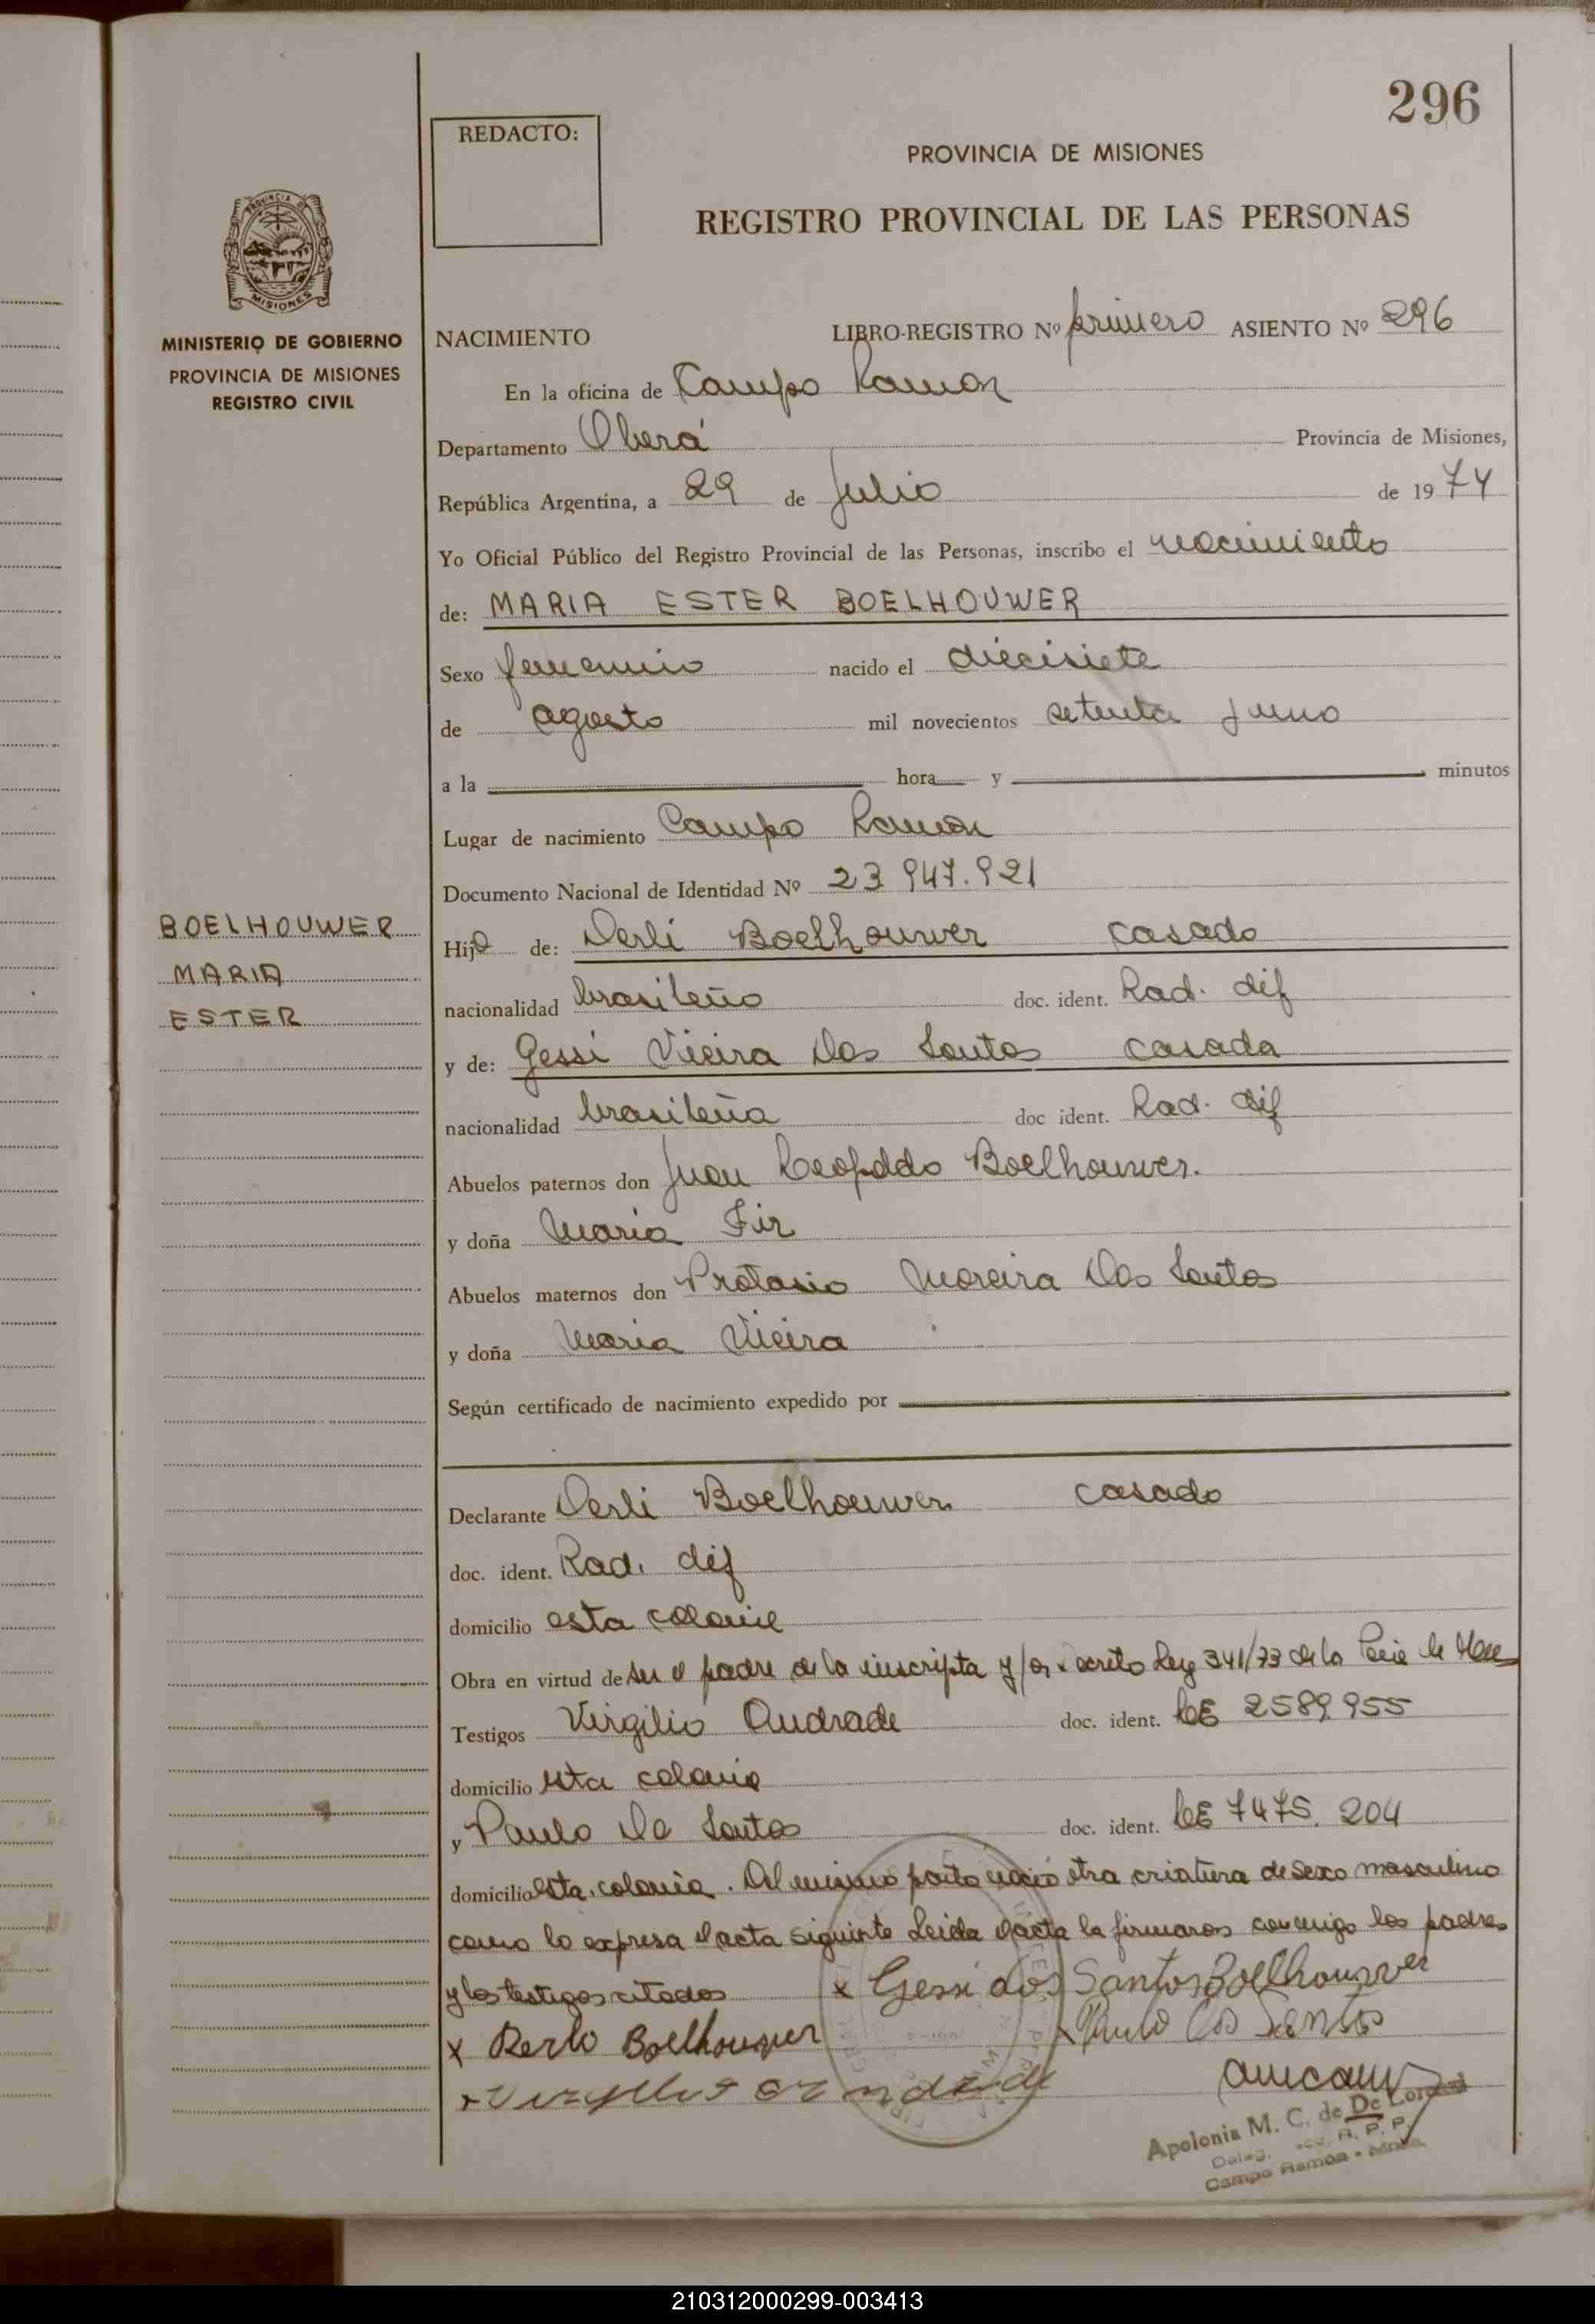 296
REDACTO:
PROVINCIA DE MISIONES
REGISTRO PROVINCIAL DE LAS PERSONAS
PROVINCIA DE
MISIONES
MINISTERIO DE GOBIERNO
PROVINCIA DE MISIONES
REGISTRO CIVIL
NACIMIENTO LIBRO-REGISTRO Nº primero ASIENTO Nº 296
En la oficina de Campo Ramon
Departamento Oberá Provincia de Misiones,
República Argentina, a 29 de Julio de 1974
Yo Oficial Público del Registro Provincial de las Personas, inscribo el nacimiento
de: MARIA ESTER BOELHOUWER
Sexo femenino nacido el diecisiete
de agosto mil novecientos setenta y uno
a la hora y minutos
Lugar de nacimiento Campo Ramon
Documento Nacional de Identidad Nº 23 947.921
BOELHOUWER
MARIA
ESTER
Hija de: Derli Boelhouwer casado
nacionalidad brasileño doc. ident. Rad. dif
y de: Gessi Vieira Dos Santos casada
nacionalidad brasileña doc ident. Rad. dif
Abuelos paternos don Juan Leopoldo Boelhouwer.
y doña Maria Fir
Abuelos maternos don Protasio Moreira Dos Santos
y doña Maria Vieira
Según certificado de nacimiento expedido por
Declarante Derli Boelhouwer casado
doc. ident. Rad. dif
domicilio esta colonia
Obra en virtud de ser el padre de la inscripta y/o decreto Ley 341/73 de la
Testigos Virgilio Andrade doc. ident. CE 2589.955
domicilio esta colonia
y Paulo Do Santos doc. ident. CE 7475.204
domicilio esta colonia. Del mismo parto nació otra criatura de sexo masculino
como lo expresa el acta siguiente Leida el acta la firmaron conmigo los padres
y los testigos citados x Gessi dos Santos Boelhouwer
x Derlo Boelhouwer x Paulo Do Santos
x Virgilio Andrade
Apolonia M. C. de De Lorenzi
R. P. P.
Campo Ramón - Mnes.
210312000299-003413